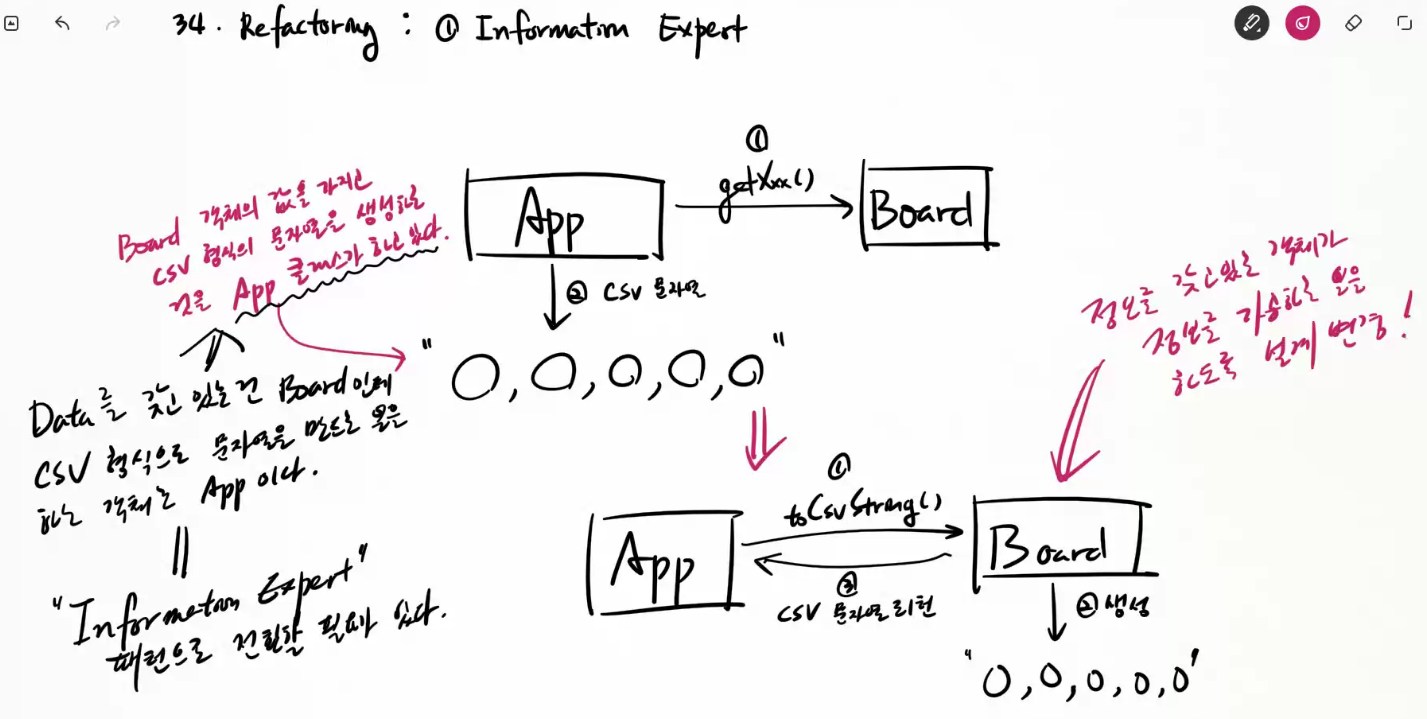 34. Refactoring : ① Information Expert
Board 객체의 값을 가지고
CSV 형식의 문자열을 생성하는
것을 App 클래스가 하고 있다.
App
①
getXxx()
Board
② CSV 문자열
"O, O, O, O, O"
Data를 갖고 있는건 Board인데
CSV 형식으로 문자열을 만드는 일을
하는 객체는 App이다.
"Information Expert"
패턴으로 전환할 필요가 있다.
정보를 갖고있는 객체가
정보를 가공하는 일을
하도록 설계 변경!
App
①
toCsvString()
③
CSV 문자열 리턴
Board
② 생성
"O, O, O, O, O"